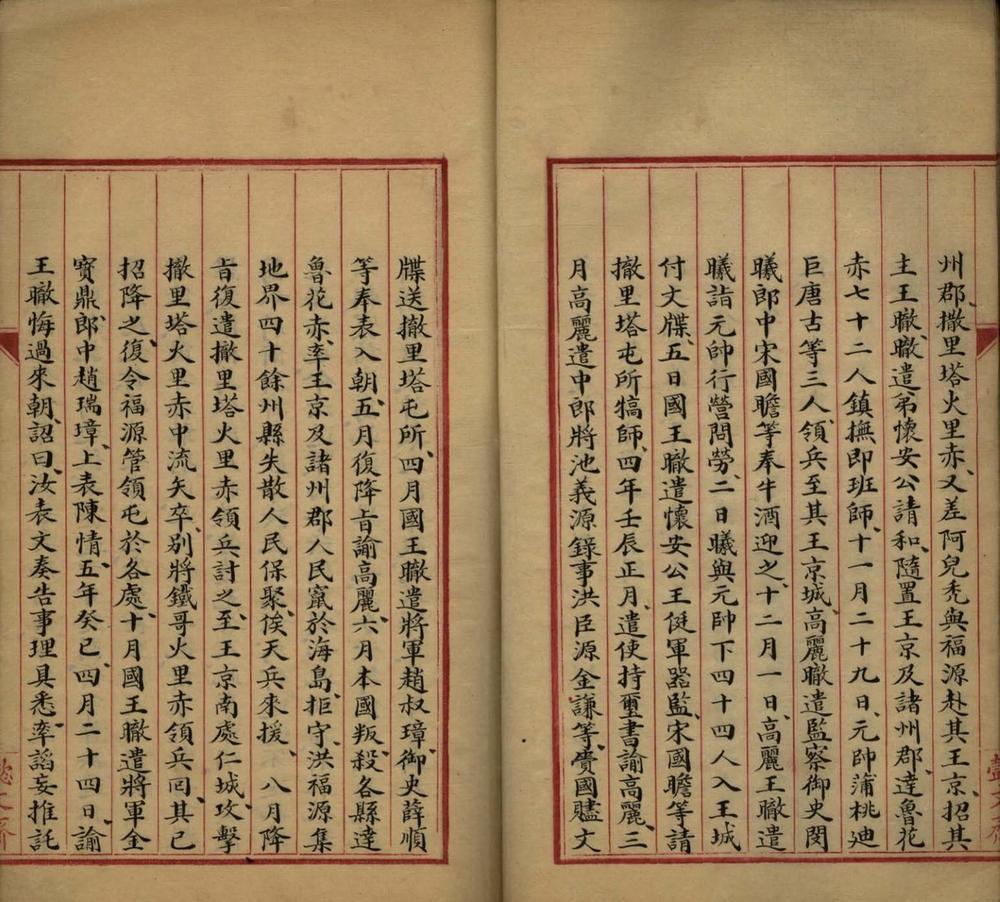 州郡撒里塔火里赤又差阿兒禿與福源赴其王京招其
主王職職遣弟懷安公請和隨置王京及諸州郡達魯花
赤七十二人鎮撫即班師十一月二十九日元帥蒲桃迪
巨唐古等三人領兵至其王京城高麗職遣監察御史閔
曦郎中宋國瞻等奉牛酒迎之十二月一日高麗王職遣
曦詣元帥行營問勞二日曦與元帥下四十四人入王城
付文牒五日國王職遣懷安公王侹軍器監宋國瞻等請
撤里塔屯所犒師四年壬辰正月遣使持璽書諭高麗三
月高麗遣中郎將池義源錄事洪臣源金謙等賫國贐文
牒送撤里塔屯所四月國王職遣將軍趙叔璋御史薛順
等奉表入朝五月復降㫖諭高麗六月本國叛殺各縣達
魯花赤率王京及諸州郡人民竄於海島拒守洪福源集
地界四十餘州縣失散人民保聚俟天兵來援八月降
㫖復遣撤里塔火里赤領兵討之至王京南處仁城攻擊
撤里塔火里赤中流矢卒別將鐵哥火里赤領兵囘其已
招降之復令福源管領屯於各處十月國王職遣將軍金
寶鼎郎中趙瑞璋上表陳情五年癸巳四月二十四日諭
王職悔過來朝詔曰汝表文奏告事理具悉率謟妄推託